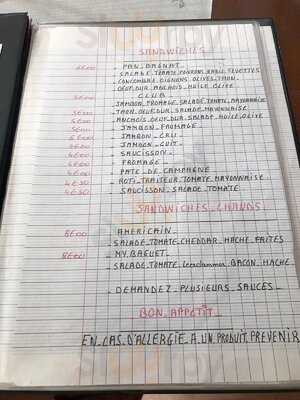 SANDWICHES
6€00 - PAN. BAGNAT
SALADE. TOMATE. POIVRONS. RADIS. FEVETTES
CONCOMBRE. OIGNONS. OLIVES. THON.
OEUF. DUR. ANCHOIS. HUILE. OLIVE
6€00 - CLUB -
JAMBON. FROMAGE. SALADE. TOMATE. MAYONNAISE
5€00 THON. OEUF. DUR. SALADE. MAYONNAISE
5€00 ANCHOIS. OEUF. DUR. SALADE. HUILE. OLIVE
5€00 - JAMBON. FROMAGE
- JAMBON. CRU
- JAMBON. CUIT
- SAUCISSON
- FROMAGE
- PATE. DE. CAMPAGNE
4€50 - ROTI. TRAITEUR. TOMATE. MAYONNAISE
4€50 - SAUCISSON. SALADE. TOMATE
SANDWICHES. CHAUDS.
8€00 - AMERICAIN
- SALADE. TOMATE. CHEDDAR. HACHE. FRITES
8€00 - MY. BAGUET.
- SALADE. TOMATE. BACON. HACHE
- DEMANDEZ. PLUSIEURS. SAUCES -
BON. APPETIT.
EN. CAS. D'ALLERGIE. A. UN. PRODUIT. PREVENIR